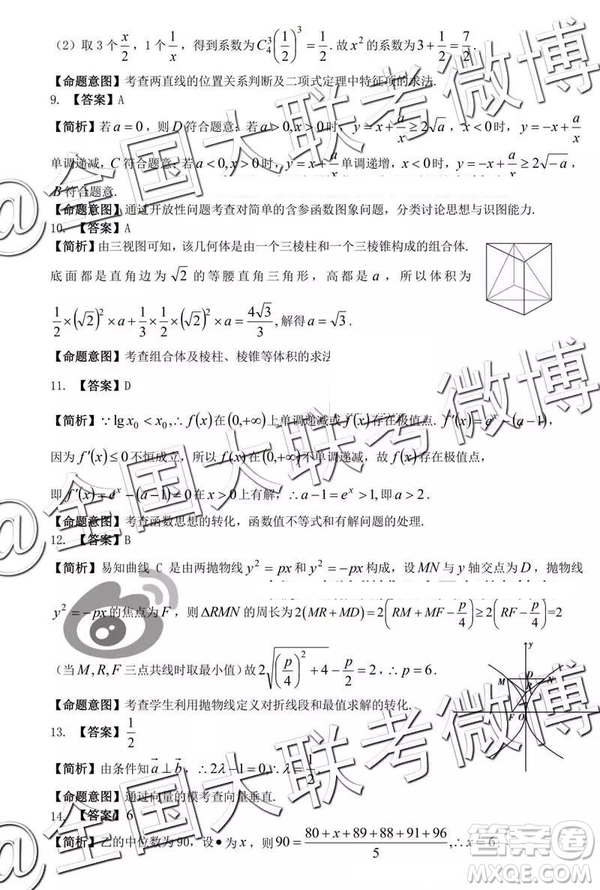 (2)取3个x/2,1个1/x,得到系数为C₄³(1/2)³=1/2.故x²的系数为3+1/2=7/2.
【命题意图】考查两直线的位置关系判断及二项式定理中特征项的求法.
9. 【答案】A
【简析】若a=0,则D符合题意.若a>0,x>0时,y=x+a/x≥2√a,x<0时,y=-x+a/x
单调递减,C符合题意.若a<0,x>0时,y=x+a/x单调递增,y=-x+a/x≥2√-a,
B符合题意.
【命题意图】通过开放性问题考查对简单的含参函数图象问题,分类讨论思想与识图能力.
10. 【答案】A
【简析】由三视图可知,该几何体是由一个三棱柱和一个三棱锥构成的组合体.
底面都是直角边为√2的等腰直角三角形,高都是a,所以体积为
1/2×(√2)²×a+1/3×1/2×(√2)²×a=4√3/3,解得a=√3.
【命题意图】考查组合体及棱柱、棱锥等体积的求法
11. 【答案】D
【简析】∵lgx₀<x₀,∴f(x)在(0,+∞)上单调递减或f(x)存在极值点.f′(x)=eˣ-(a-1),
因为f′(x)≤0不恒成立,所以f(x)在(0,+∞)不单调递减,故f(x)存在极值点,
即f′(x)=eˣ-(a-1)=0在(0,+∞)上有解,∴a-1=eˣ>1,即a>2.
【命题意图】考查函数思想的转化,函数值不等式和有解问题的处理.
12. 【答案】B
【简析】易知曲线 C 是由两抛物线y²=px和y²=-px构成,设MN与y轴交点为D,抛物线
y²=-px的焦点为F,则ΔRMN的周长为2(MR+MD)=2(RM+MF-p/4)≥2(RF-p/4)=2
(当M,R,F三点共线时取最小值)故2√((p/4)²+4)-p/2=2,∴p=6.
y
M
D
N
R
F
O
【命题意图】考查学生利用抛物线定义对折线段和最值求解的转化.
13. 【答案】1/2
【简析】由条件知a⊥b,∴2λ-1=0∴λ=1/2.
【命题意图】通过向量的模考查向量垂直.
14. 【答案】6
【简析】乙的中位数为90,设●为x,则90=(80+x+89+88+91+96)/5,∴x=6
@全国大联考微博
@全国大联考微博
@全国大联考微博
答案卷